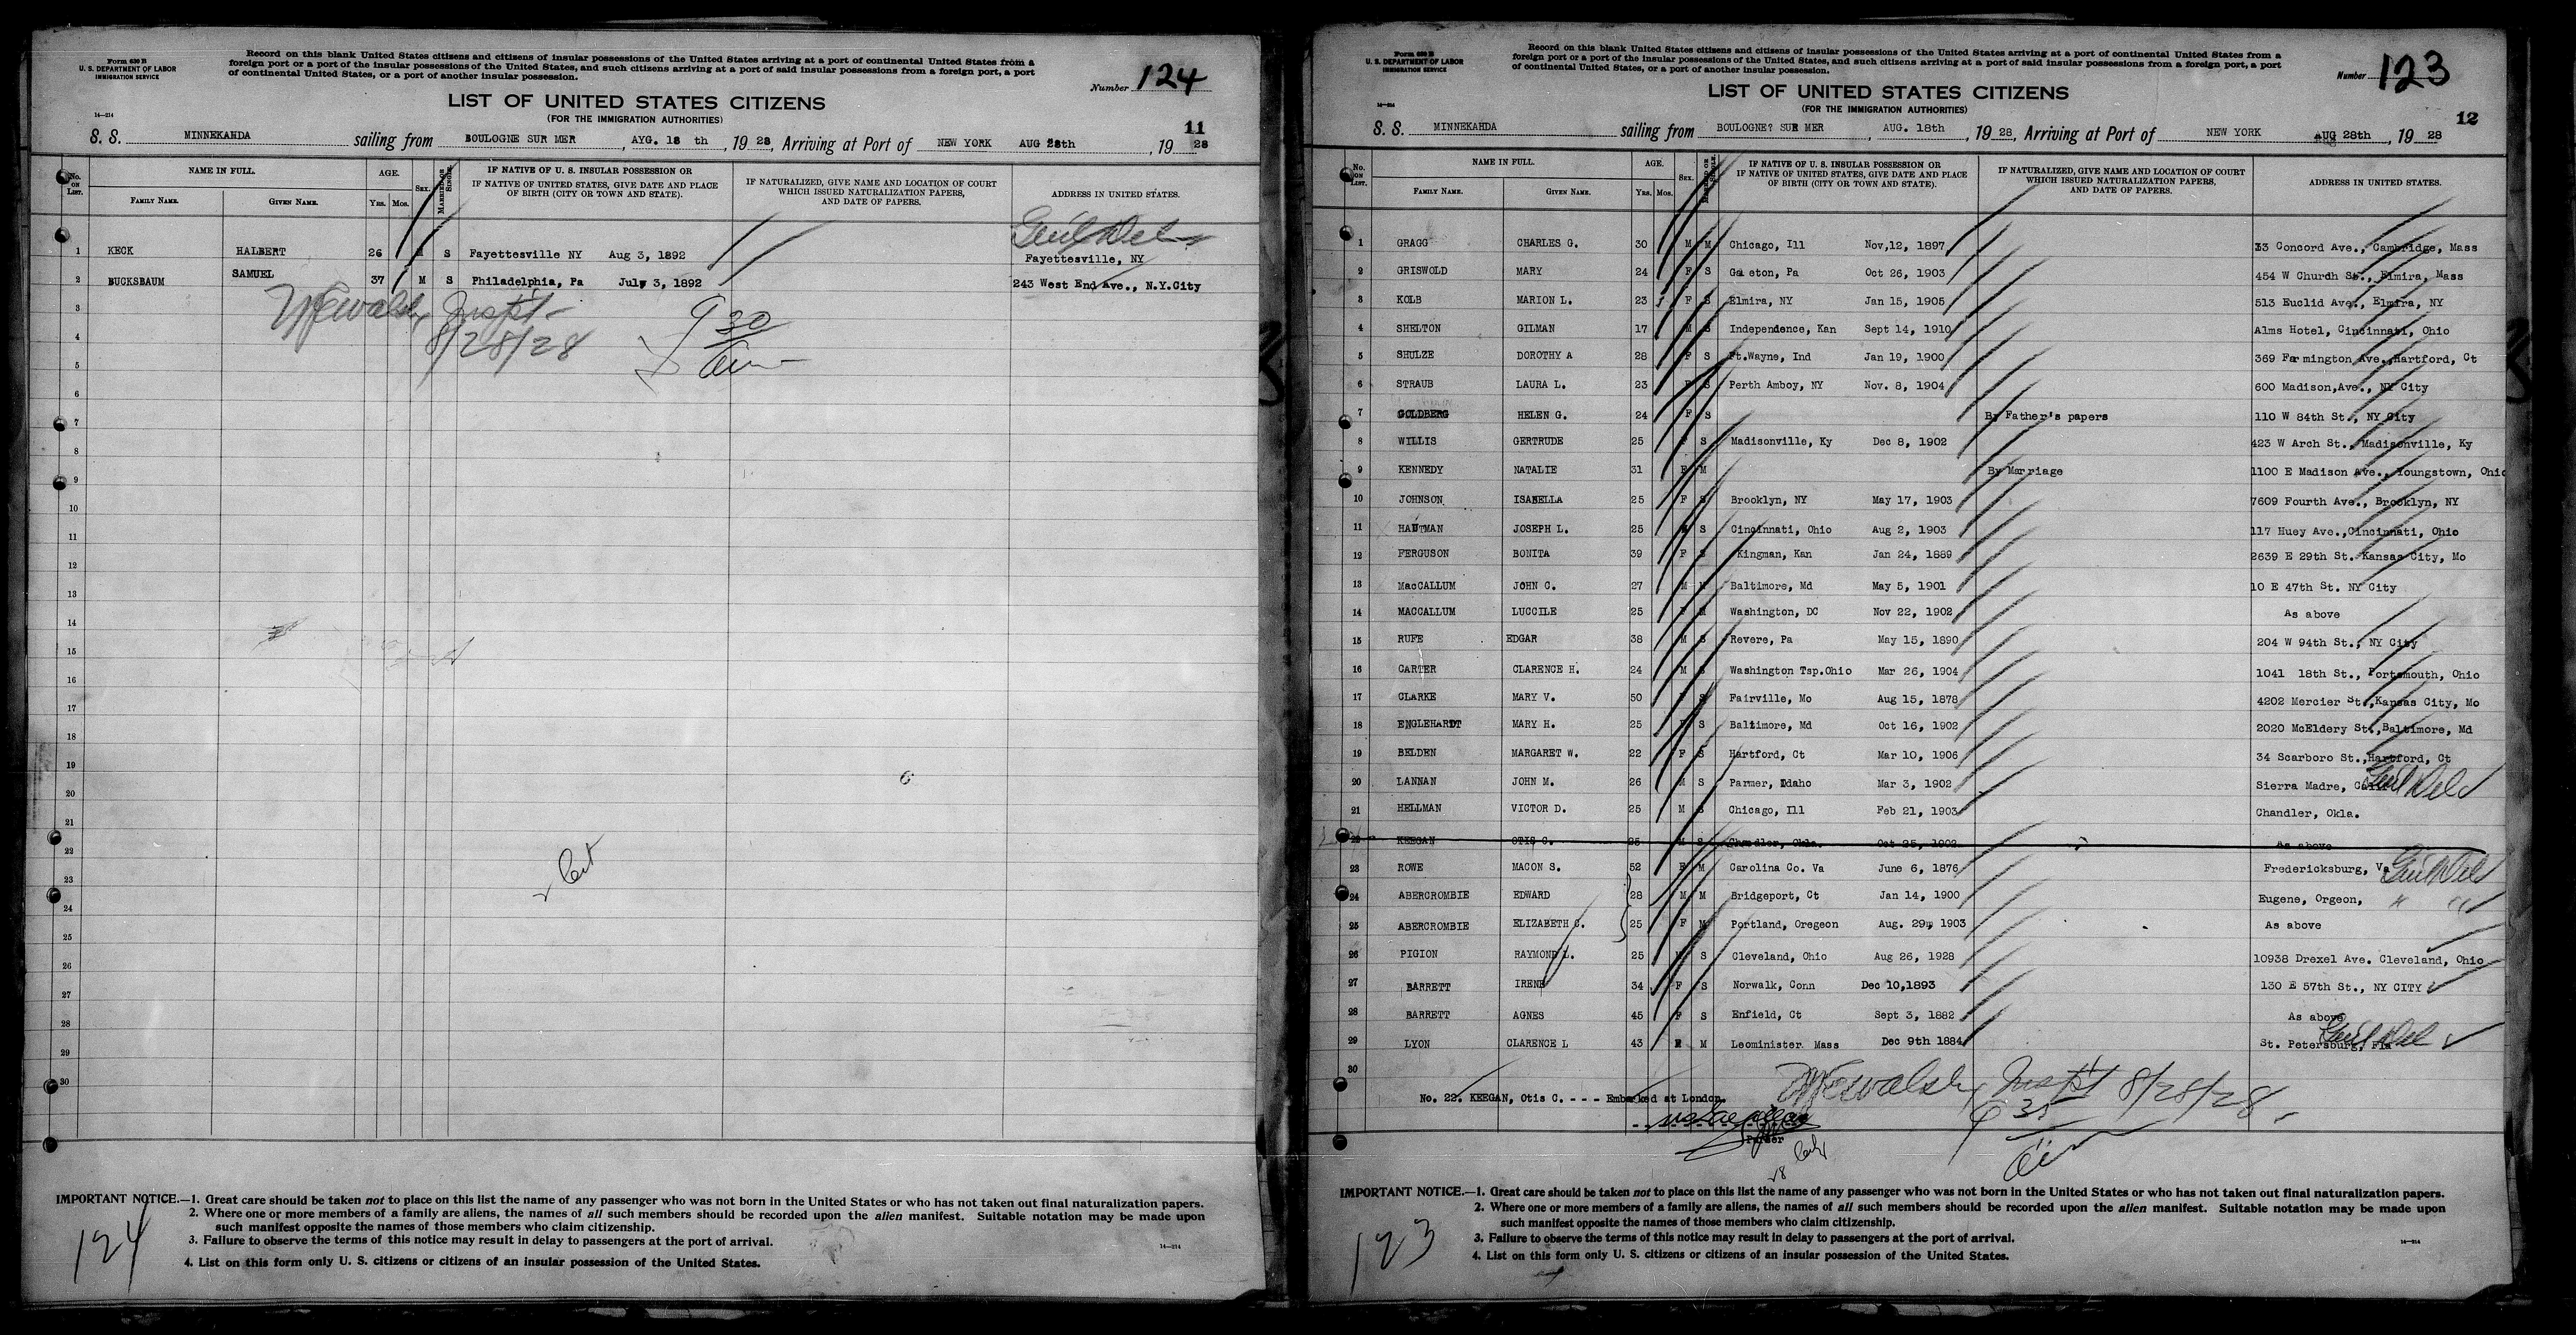 Form 630 B
U. S. DEPARTMENT OF LABOR
IMMIGRATION SERVICE
Record on this blank United States citizens and citizens of insular possessions of the United States arriving at a port of continental United States from a
foreign port or a port of the insular possessions of the United States, and such citizens arriving at a port of said insular possessions from a foreign port, a port
of continental United States, or a port of another insular possession.
Number 124
LIST OF UNITED STATES CITIZENS
(FOR THE IMMIGRATION AUTHORITIES)
14—214
11
S. S. MINNEKAHDA sailing from BOULOGNE SUR MER, AYG. 18 th, 1928, Arriving at Port of NEW YORK AUG 28th, 1928
No. on List. NAME IN FULL. AGE. Sex. Married or Single. IF NATIVE OF U. S. INSULAR POSSESSION OR IF NATIVE OF UNITED STATES, GIVE DATE AND PLACE OF BIRTH (CITY OR TOWN AND STATE). IF NATURALIZED, GIVE NAME AND LOCATION OF COURT WHICH ISSUED NATURALIZATION PAPERS, AND DATE OF PAPERS. ADDRESS IN UNITED STATES.
Family Name. Given Name. Yrs. Mos.
Gen'l Del
1 KECK HALBERT 26 M S Fayettesville NY Aug 3, 1892 Fayettesville, NY
2 BUCKSBAUM SAMUEL 37 M S Philadelphia, Pa July 3, 1892 243 West End Ave., N.Y.City
3 Insp't
4 8/28/28 9 30
5
6
7
8
9
10
11
12
13
14
15
16
17
18
19
20
21
22
23
24
25
26
27
28
29
30
IMPORTANT NOTICE.—1. Great care should be taken not to place on this list the name of any passenger who was not born in the United States or who has not taken out final naturalization papers.
2. Where one or more members of a family are aliens, the names of all such members should be recorded upon the alien manifest. Suitable notation may be made upon
such manifest opposite the names of those members who claim citizenship.
3. Failure to observe the terms of this notice may result in delay to passengers at the port of arrival.
4. List on this form only U. S. citizens or citizens of an insular possession of the United States.
14—214
124
Form 630 B
U. S. DEPARTMENT OF LABOR
IMMIGRATION SERVICE
Record on this blank United States citizens and citizens of insular possessions of the United States arriving at a port of continental United States from a
foreign port or a port of the insular possessions of the United States, and such citizens arriving at a port of said insular possessions from a foreign port, a port
of continental United States, or a port of another insular possession.
Number 123
LIST OF UNITED STATES CITIZENS
(FOR THE IMMIGRATION AUTHORITIES)
14—214
12
S. S. MINNEKAHDA sailing from BOULOGNE? SUR MER, AUG. 18th, 1928, Arriving at Port of NEW YORK AUG 28th, 1928
No. on List. NAME IN FULL. AGE. Sex. Married or Single. IF NATIVE OF U. S. INSULAR POSSESSION OR IF NATIVE OF UNITED STATES, GIVE DATE AND PLACE OF BIRTH (CITY OR TOWN AND STATE). IF NATURALIZED, GIVE NAME AND LOCATION OF COURT WHICH ISSUED NATURALIZATION PAPERS, AND DATE OF PAPERS. ADDRESS IN UNITED STATES.
Family Name. Given Name. Yrs. Mos.
1 GRAGG CHARLES G. 30 M M Chicago, Ill Nov,12, 1897 33 Concord Ave., Cambridge, Mass
2 GRISWOLD MARY 24 F S Galeton, Pa Oct 26, 1903 454 W Churdh St., Elmira, Mass
3 KOLB MARION L. 23 F S Elmira, NY Jan 15, 1905 513 Euclid Ave., Elmira, NY
4 SHELTON GILMAN 17 M S Independence, Kan Sept 14, 1910 Alms Hotel, Cincinnati, Ohio
5 SHULZE DOROTHY A 28 F S Ft.Wayne, Ind Jan 19, 1900 369 Farmington Ave.,Hartford, Ct
6 STRAUB LAURA L. 23 F S Perth Amboy, NY Nov. 8, 1904 600 Madison,Ave., NY City
7 GOLDBERG HELEN G. 24 F S By Father's papers 110 W 84th St., NY City
8 WILLIS GERTRUDE 25 F S Madisonville, Ky Dec 8, 1902 423 W Arch St., Madisonville, Ky
9 KENNEDY NATALIE 31 F M By Marriage 1100 E Madison Ave., Youngstown, Ohio
10 JOHNSON ISABELLA 25 F S Brooklyn, NY May 17, 1903 7609 Fourth Ave., Brooklyn, NY
11 HAUTMAN JOSEPH L. 25 M S Cincinnati, Ohio Aug 2, 1903 117 Huey Ave.,Cincinnati, Ohio
12 FERGUSON BONITA 39 F S Kingman, Kan Jan 24, 1889 2639 E 29th St. Kansas City, Mo
13 MacCALLUM JOHN C. 27 M M Baltimore, Md May 5, 1901 10 E 47th St. NY City
14 MACCALLUM LUCCILE 25 F M Washington, DC Nov 22, 1902 As above
15 RUFE EDGAR 38 M S Revere, Pa May 15, 1890 204 W 94th St., NY City
16 CARTER CLARENCE H. 24 M S Washington Tsp.Ohio Mar 26, 1904 1041 18th St., Portsmouth, Ohio
17 CLARKE MARY V. 50 F S Fairville, Mo Aug 15, 1878 4202 Mercier St.,Kansas City, Mo
18 ENGLEHARDT MARY H. 25 F S Baltimore, Md Oct 16, 1902 2020 McEldery St.,Baltimore, Md
19 BELDEN MARGARET W. 22 F S Hartford, Ct Mar 10, 1906 34 Scarboro St.,Hartford, Ct
20 LANNAN JOHN M. 26 M S Parmer, Idaho Mar 3, 1902 Sierra Madre, Calif Gen'l Del
21 HELLMAN VICTOR D. 25 M S Chicago, Ill Feb 21, 1903 Chandler, Okla.
22 KEEGAN OTIS C. 25 M S Chandler, Okla. Oct 25, 1902 As above
23 ROWE MACON S. 52 F M Carolina Co. Va June 6, 1876 Fredericksburg, Va Gen'l Del
24 ABERCROMBIE EDWARD 28 M M Bridgeport, Ct Jan 14, 1900 Eugene, Orgeon, " "
25 ABERCROMBIE ELIZABETH C. 25 F M Portland, Oregeon Aug. 29, 1903 As above
26 PIGION RAYMOND L. 25 M S Cleveland, Ohio Aug 26, 1928 10938 Drexel Ave. Cleveland, Ohio
27 BARRETT IRENE 34 F S Norwalk, Conn Dec 10,1893 130 E 57th St., NY CITY
28 BARRETT AGNES 45 F S Enfield, Ct Sept 3, 1882 As above
29 LYON CLARENCE L 43 M Leominister. Mass Dec 9th 1884 St. Petersburg, Fla Gen'l Del
30
Insp't 8/28/28
No. 22. KEEGAN, Otis C. - - - Embarked at London.
9 35
Purser
IMPORTANT NOTICE.—1. Great care should be taken not to place on this list the name of any passenger who was not born in the United States or who has not taken out final naturalization papers.
2. Where one or more members of a family are aliens, the names of all such members should be recorded upon the alien manifest. Suitable notation may be made upon
such manifest opposite the names of those members who claim citizenship.
3. Failure to observe the terms of this notice may result in delay to passengers at the port of arrival.
4. List on this form only U. S. citizens or citizens of an insular possession of the United States.
14—214
123